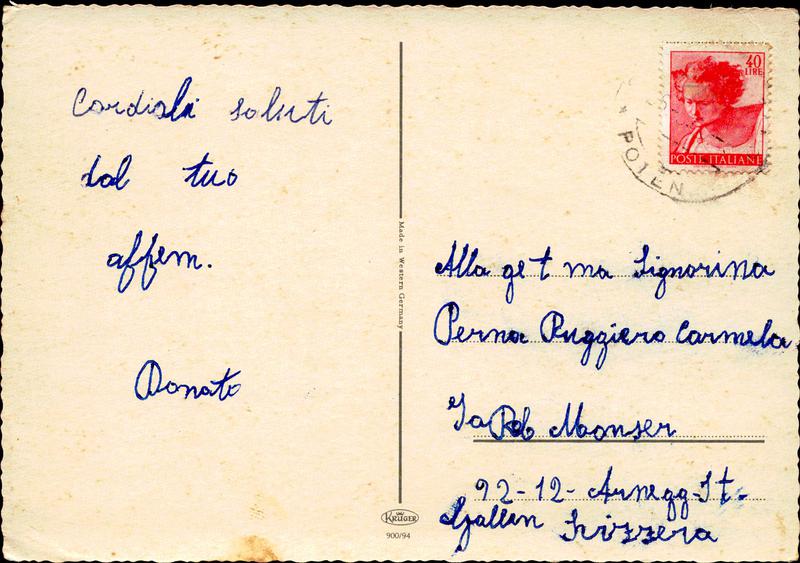 Cordiali saluti
dal tuo
affem.
Donato
40
LIRE
POSTE ITALIANE
POTEN
Made in Western Germany
Alla get ma Signorina
Perna Ruggiero Carmela
Jakob Monser
92-12- Arnegg-St-
Gallen Svizzera
KRÜGER
900/94